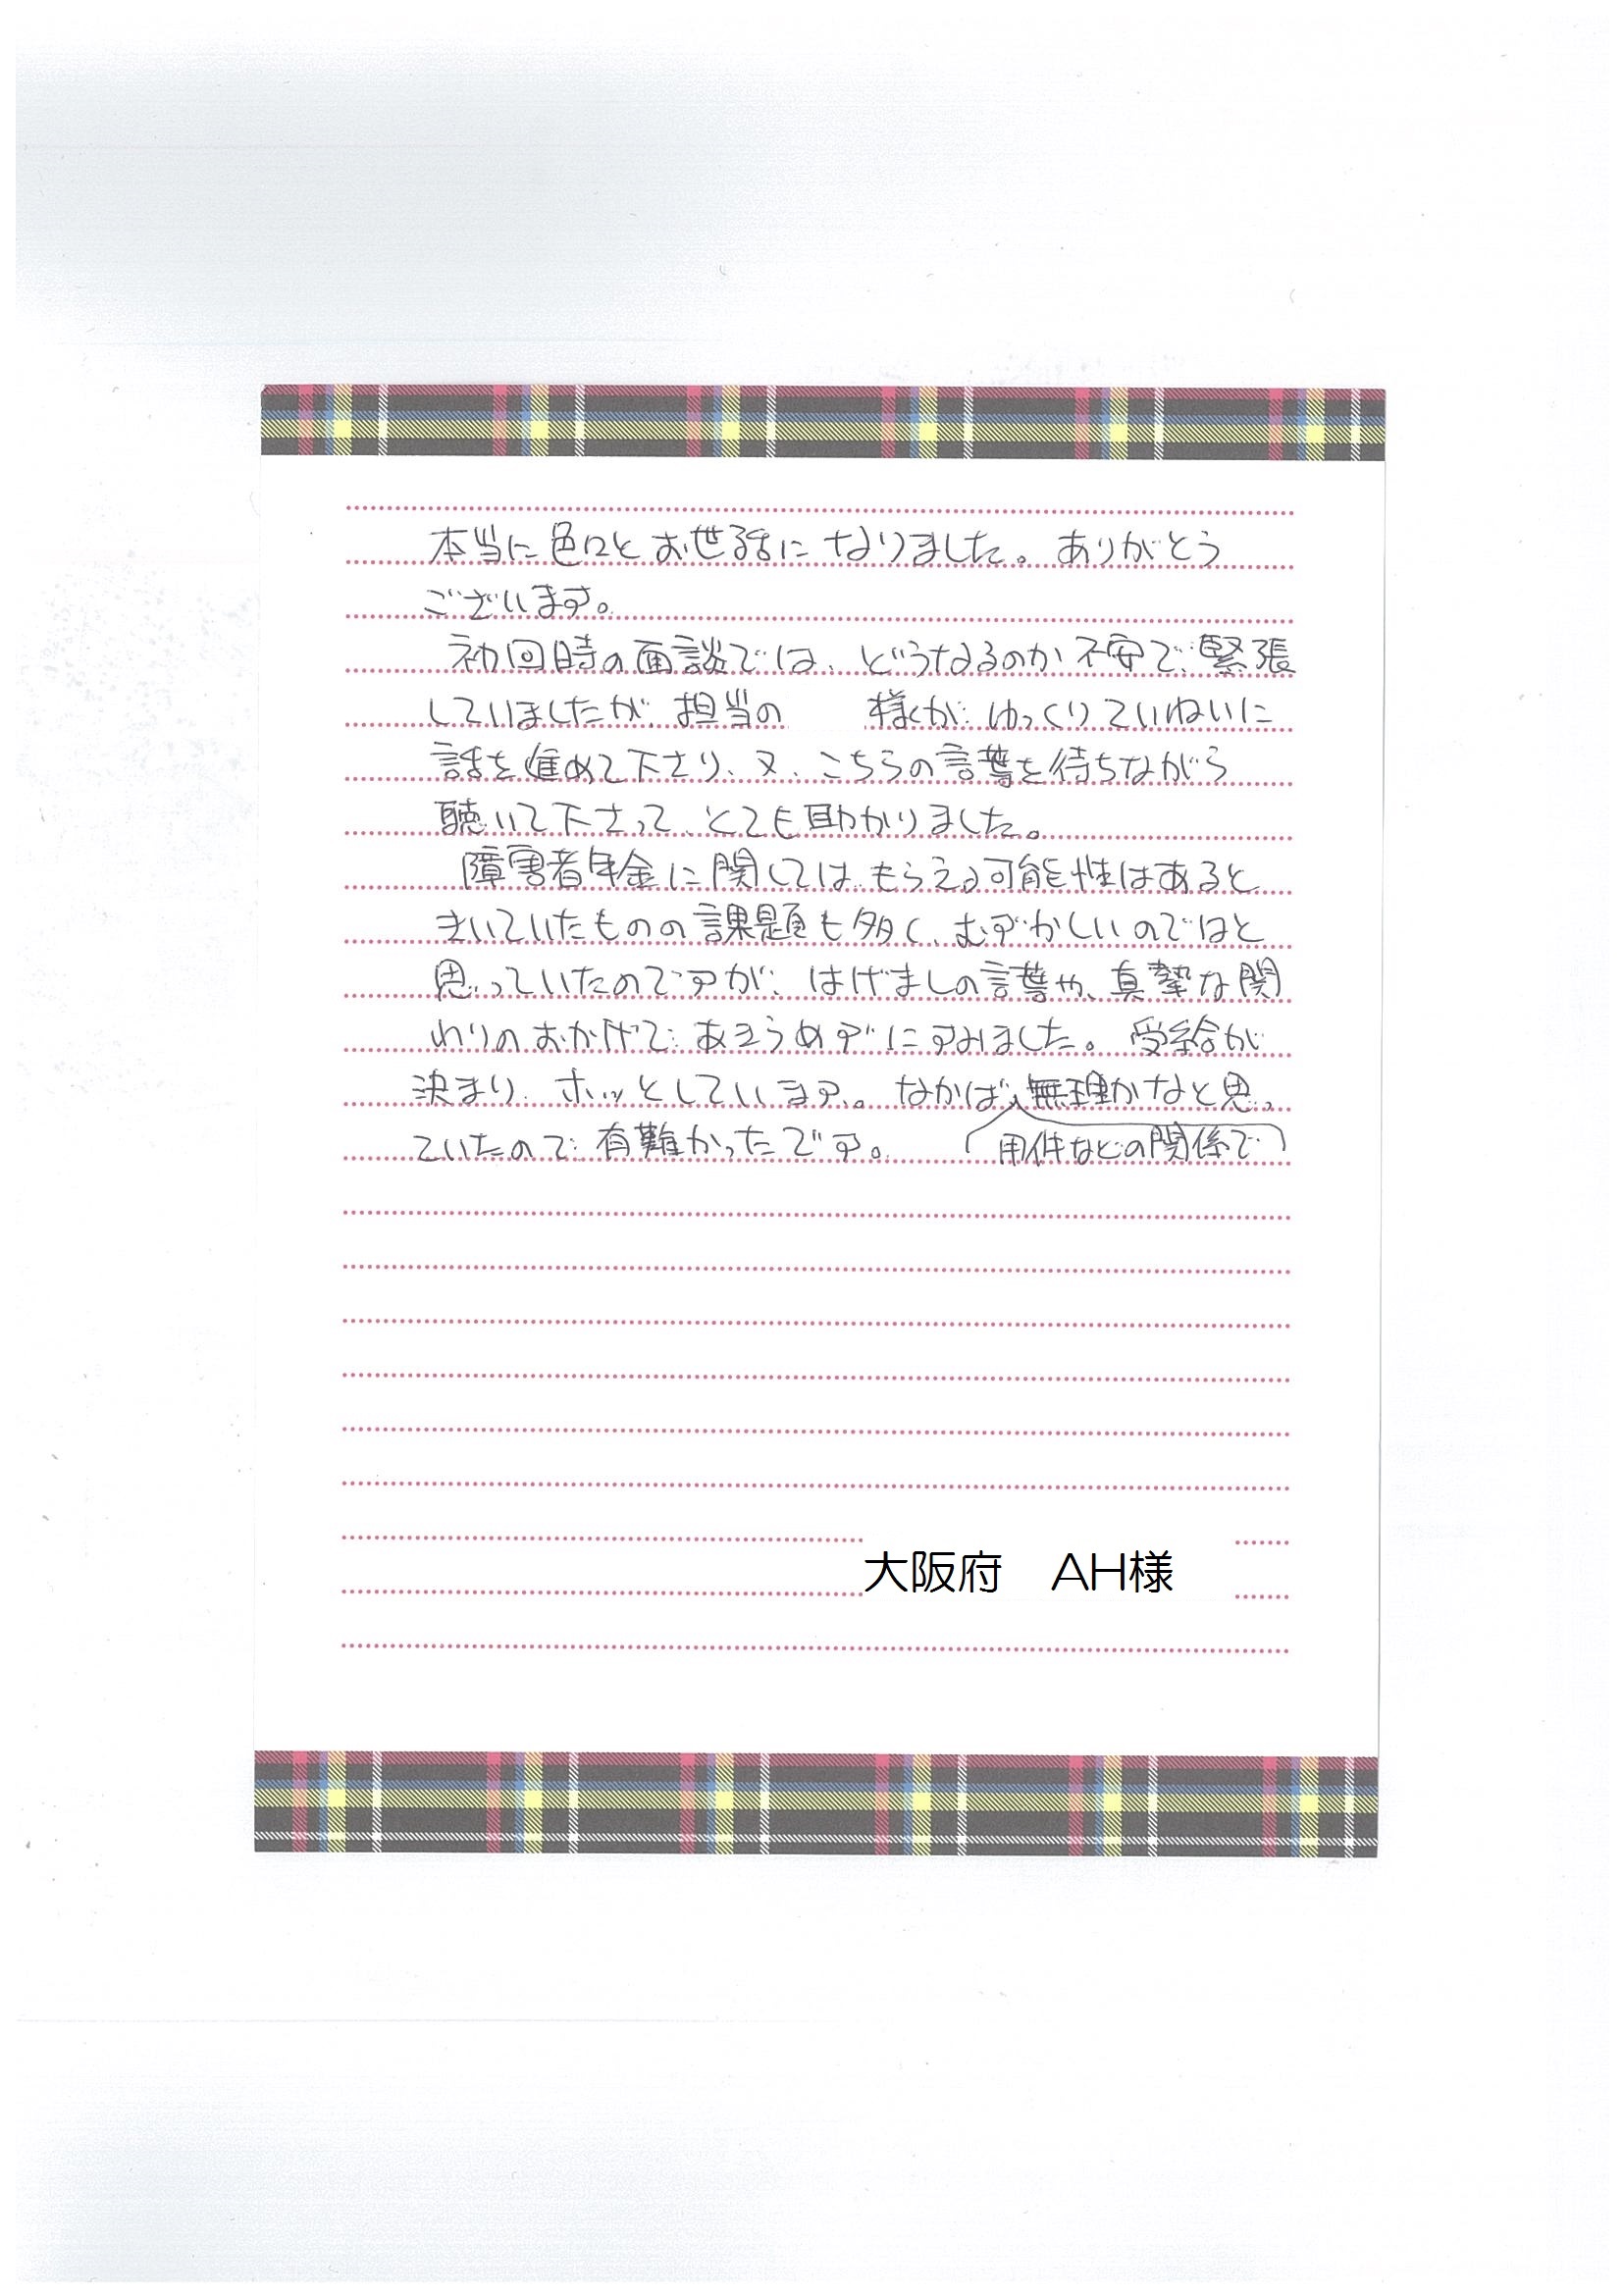 本当に色々とお世話になりました。ありがとう
ございます。
初回時の面談では、どうなるのか不安で、緊張
していましたが、担当の 様が、ゆっくりていねいに
話を進めて下さり、又、こちらの言葉を待ちながら
聴いて下さって、とても助かりました。
障害者年金に関しては、もらえる可能性はあると
きいていたものの課題も多く、むずかしいのではと
思っていたのですが、はげましの言葉や、真摯な関
わりのおかげで、あきらめずにすみました。受給が
決まり、ホッとしています。なかば、無理かなと思っ
ていたので、有難かったです。 (用件などの関係で)
大阪府 AH様